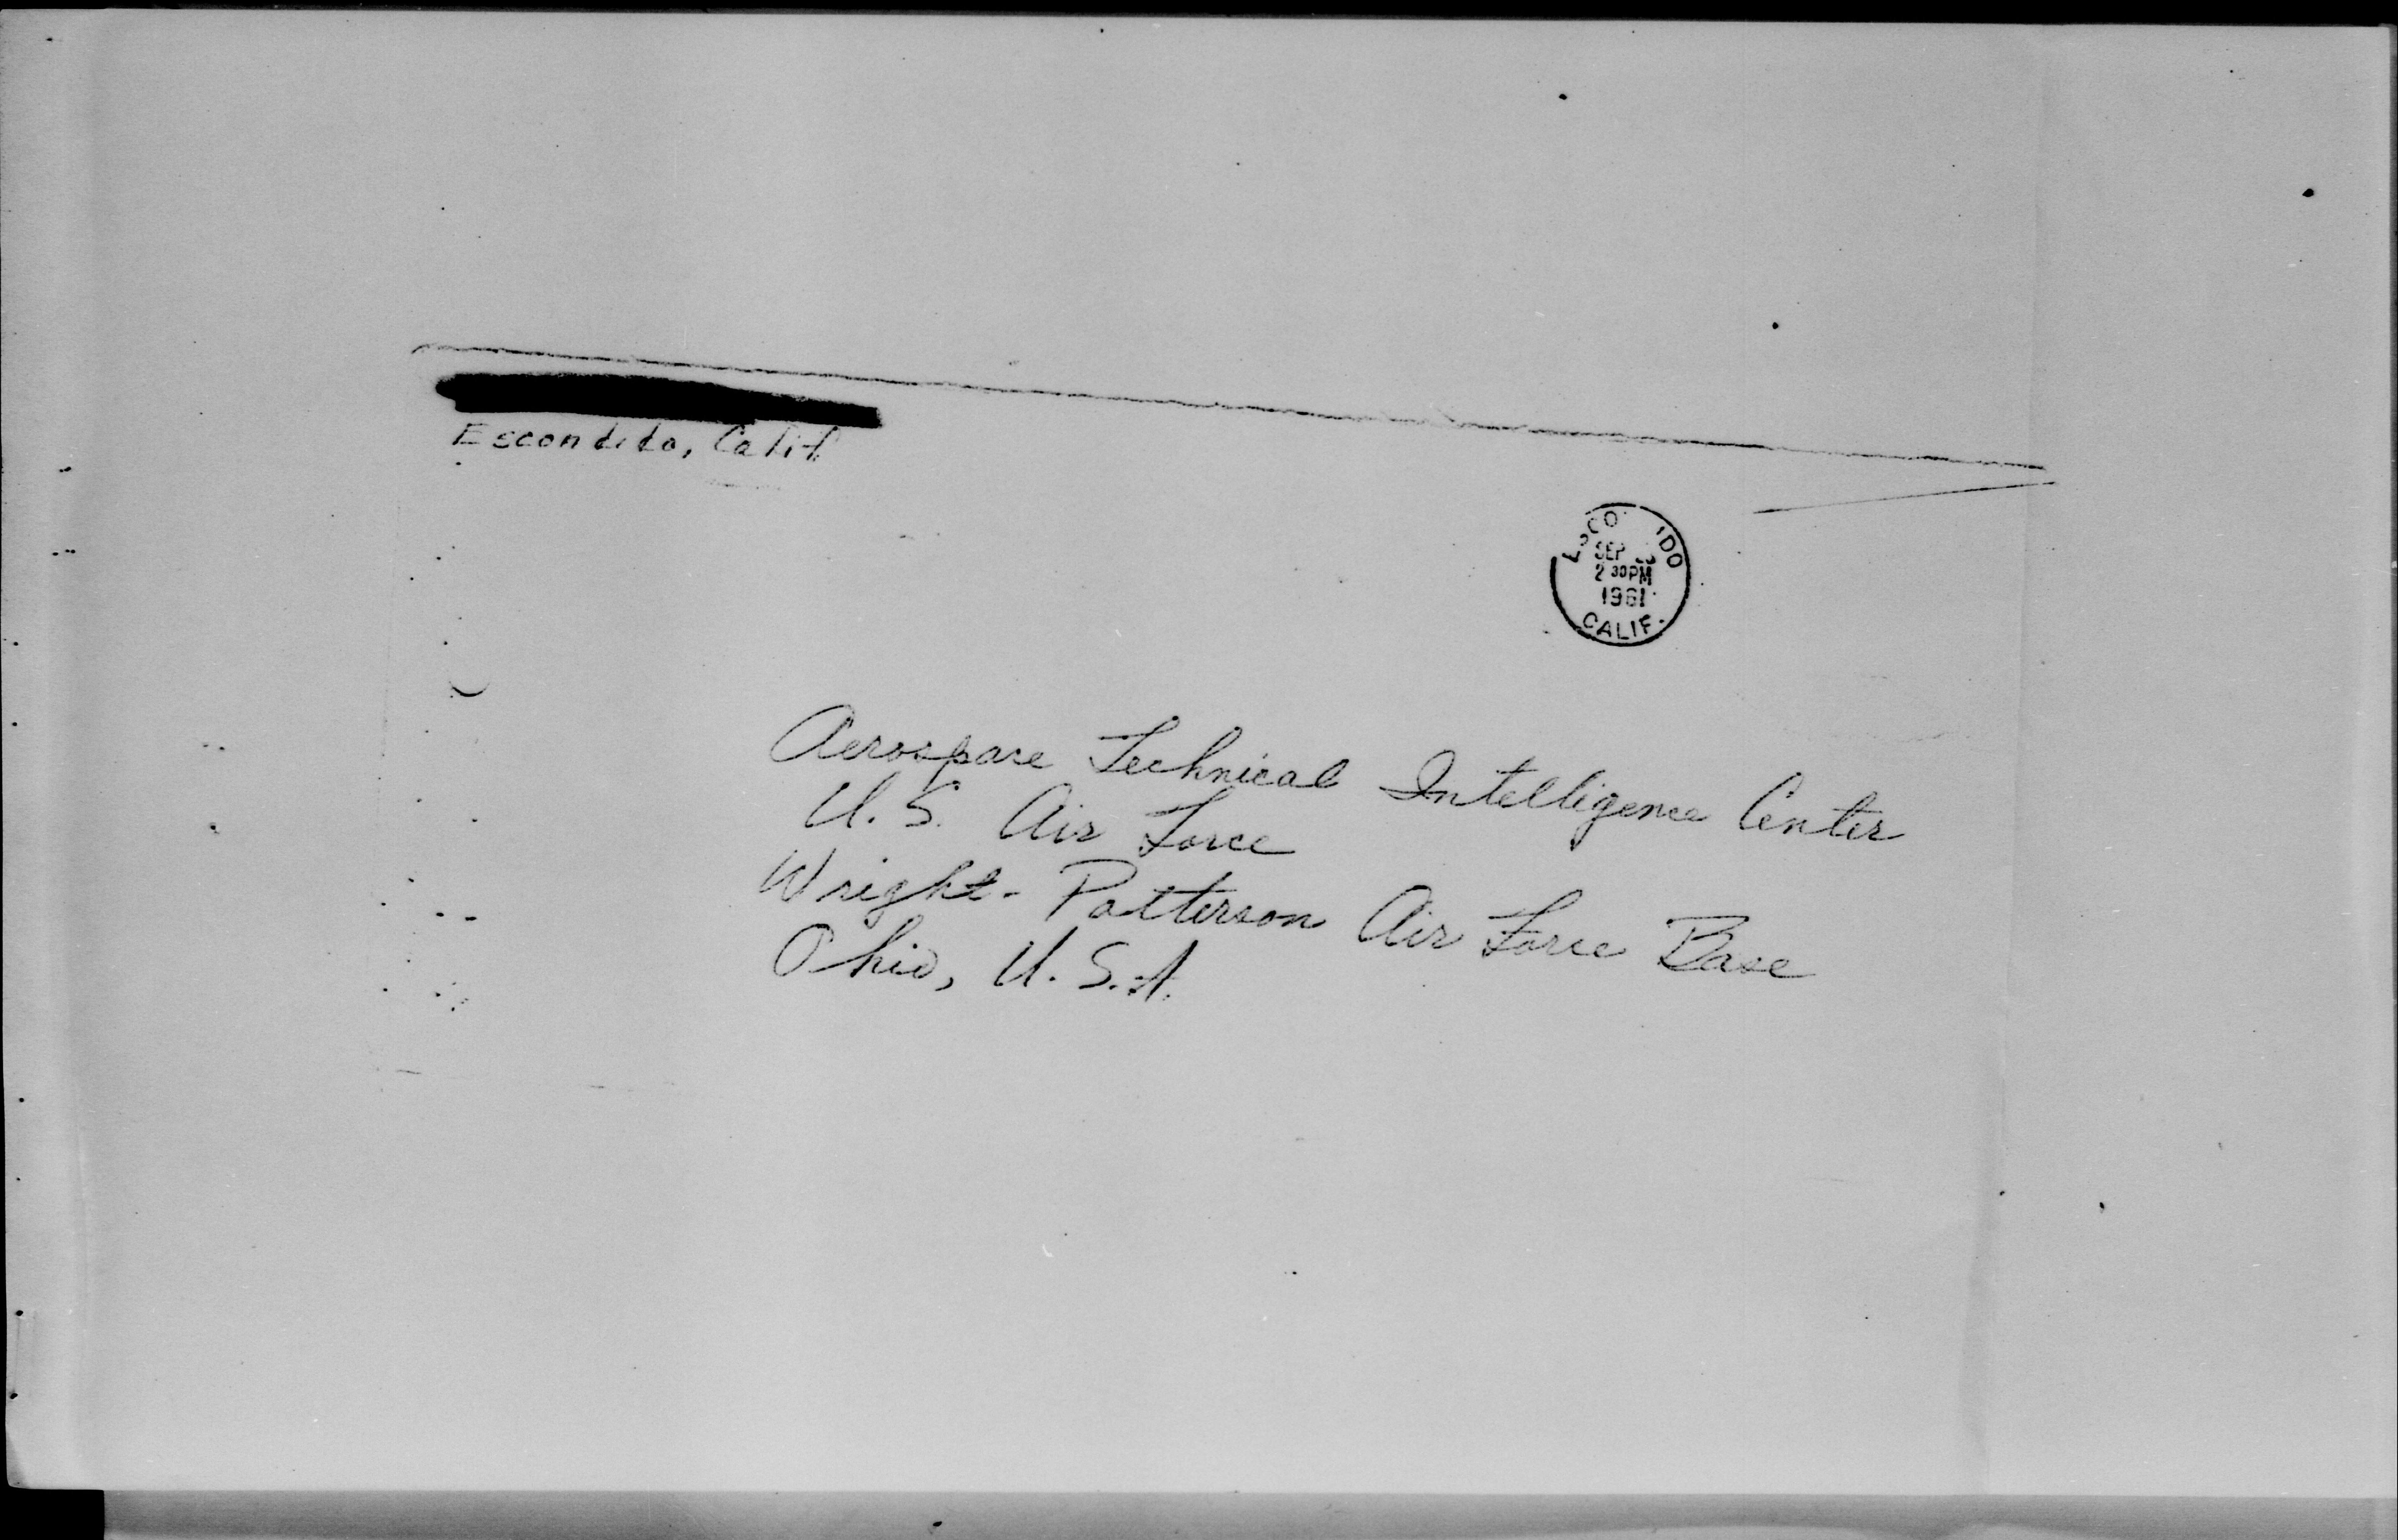 Escondido, Calif
ESCO IDO
SEP
2 30 PM
1961
CALIF.
Aerospace Technical Intelligence Center
U.S. Air Force
Wright-Patterson Air Force Base
Ohio, U.S.A.